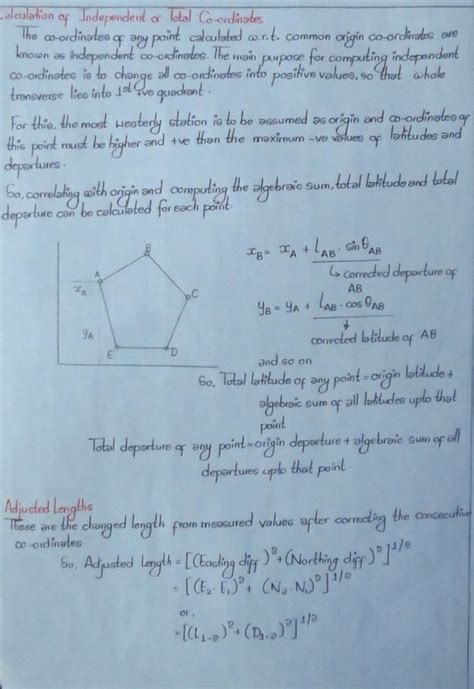 Calculation of Independent or Total Co-ordinates
The co-ordinates of any point calculated w.r.t. common origin co-ordinates are
known as independent co-ordinates. The main purpose for computing independent
co-ordinates is to change all co-ordinates into positive values, so that whole
transverse lies into 1st +ve quadrant.
For this, the most westerly station is to be assumed as origin and co-ordinates of
this point must be higher and +ve than the maximum -ve values of latitudes and
departures.
So, correlating with origin and computing the algebraic sum, total latitude and total
departure can be calculated for each point.
B
A
C
x_A
y_A
E
D
x_B = x_A + L_AB · sinθ_AB
↳ corrected departure of
AB
y_B = y_A + L_AB · cosθ_AB
↓
corrected latitude of AB
and so on
So, Total latitude of any point = origin latitude +
algebraic sum of all latitudes upto that
point
Total departure of any point = origin departure + algebraic sum of all
departures upto that point.
Adjusted Lengths
These are the changed length from measured values after correcting the consecutive
co-ordinates
So, Adjusted Length = [(Easting diff)² + (Northing diff)²]^1/2
= [(E₂ - E₁)² + (N₂ - N₁)²]^1/2
or.
= [(L₁₋₂)² + (D₁₋₂)²]^1/2